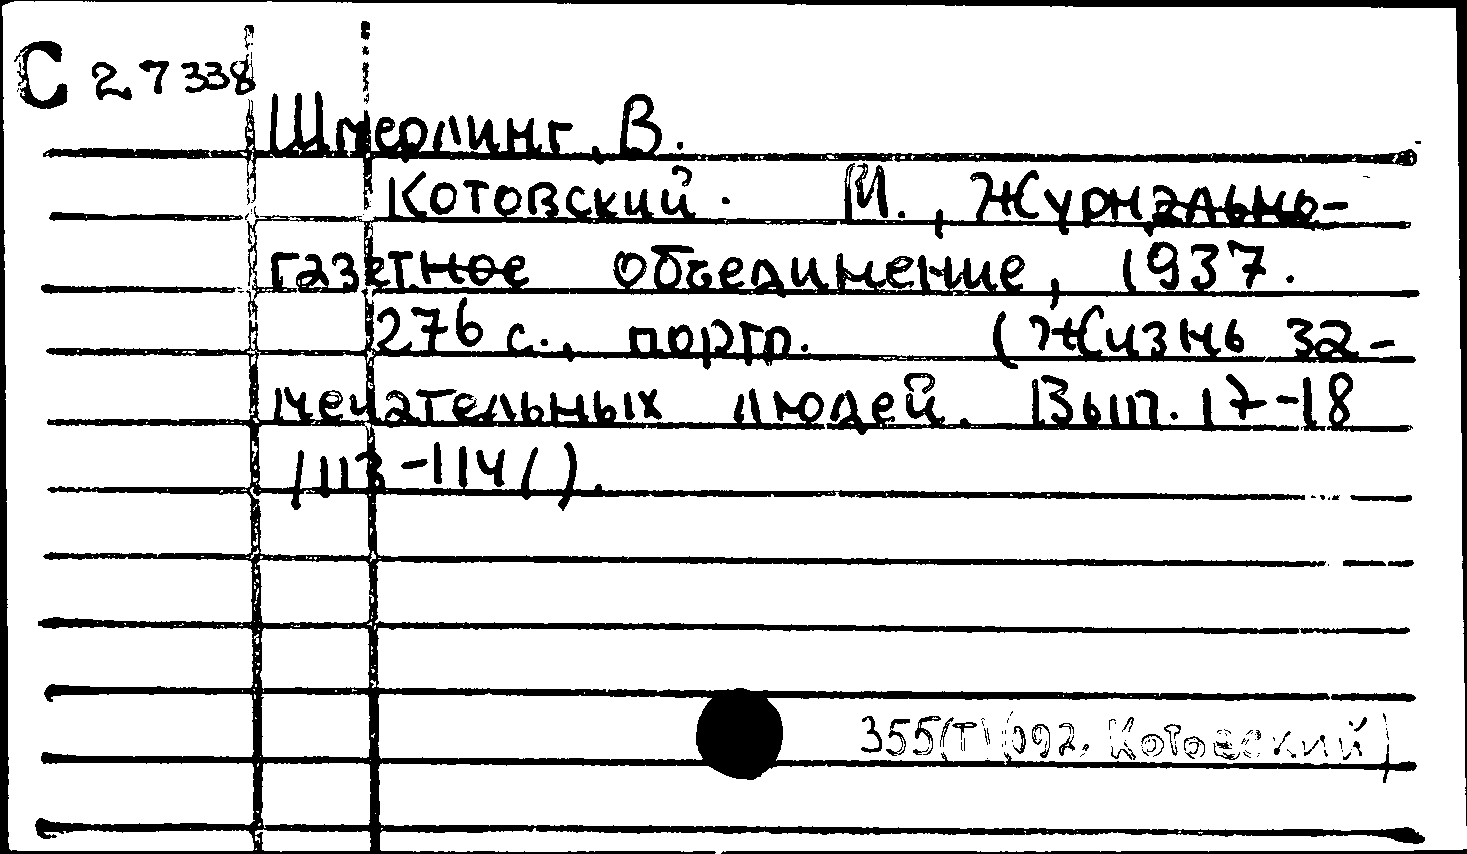 С 27338
Шмерлинг, В.
Котовский. М., Журнально-
газетное объединение, 1937.
276 с., портр. (Жизнь за-
мечательных людей. Вып. 17-18
/113-114/).
355(Т)(092. Котовский)